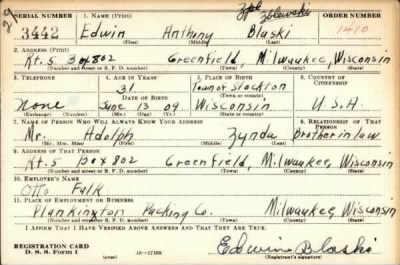 29
SERIAL NUMBER 1. NAME (Print) Zblewski ORDER NUMBER
3442 Edwin Anthony Blaski 1410
(First) (Middle) (Last)
2. ADDRESS (Print)
Rt. 5 Box 802 Greenfield, Milwaukee, Wisconsin
(Number and street or R. F. D. number) (Town) (County) (State)
3. TELEPHONE 4. AGE IN YEARS 5. PLACE OF BIRTH 6. COUNTRY OF CITIZENSHIP
31 Town of Stockton
DATE OF BIRTH (Town or county)
None June 13 09 Wisconsin U.S.A.
(Exchange) (Number) (Mo.) (Day) (Yr.) (State or country)
7. NAME OF PERSON WHO WILL ALWAYS KNOW YOUR ADDRESS 8. RELATIONSHIP OF THAT PERSON
Mr. Adolph Zynda Brother in law
(Mr., Mrs., Miss) (First) (Middle) (Last)
9. ADDRESS OF THAT PERSON
Rt. 5 Box 802 Greenfield, Milwaukee, Wisconsin
(Number and street or R. F. D. number) (Town) (County) (State)
10. EMPLOYER'S NAME
Otto Falk
11. PLACE OF EMPLOYMENT OR BUSINESS
Plankington Packing Co. Milwaukee, Wisconsin
(Number and street or R. F. D. number) (Town) (County) (State)
I AFFIRM THAT I HAVE VERIFIED ABOVE ANSWERS AND THAT THEY ARE TRUE.
REGISTRATION CARD
D. S. S. Form 1 16—17105 Edwin Blaski
(Registrant's signature)